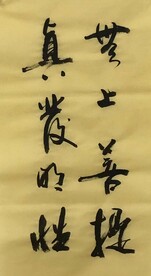 無上菩提
真發明性